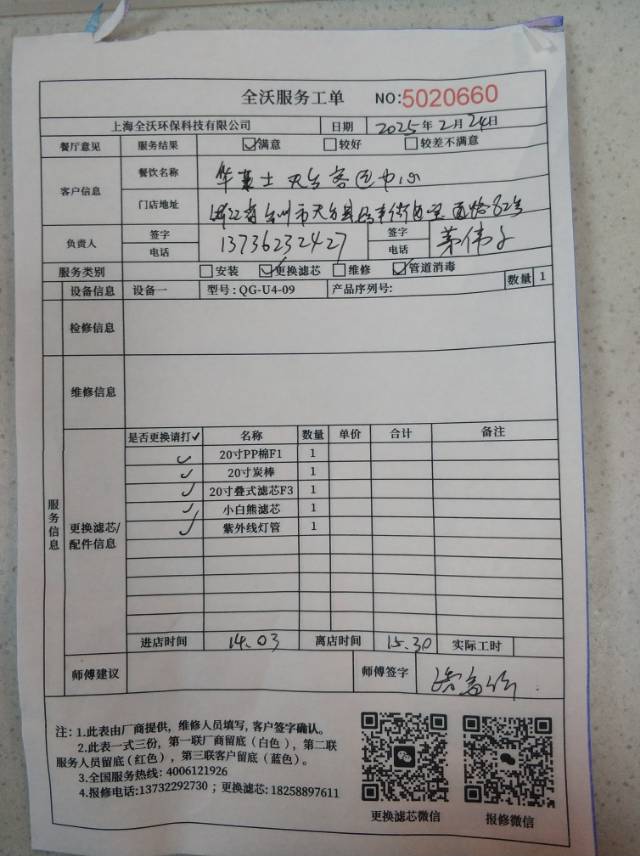 全沃服务工单 NO:5020660
上海全沃环保科技有限公司 日期 2025年2月24日
餐厅意见 服务结果 ☑满意 □较好 □较差不满意
客户信息 餐饮名称 华莱士 天台客运中心
门店地址 浙江省台州市天台县 街 82号
负责人 签字 电话 13736232427 签字 电话
服务类别 □安装 ☑更换滤芯 □维修 ☑管道消毒
设备信息 设备一 型号:QG-U4-09 产品序列号: 数量 1
服务信息
检修信息
维修信息
更换滤芯/配件信息
是否更换请打✓ 名称 数量 单价 合计 备注
✓ 20寸PP棉F1 1
✓ 20寸炭棒 1
✓ 20寸叠式滤芯F3 1
✓ 小白熊滤芯 1
✓ 紫外线灯管 1
进店时间 14.03 离店时间 15.30 实际工时
师傅建议 师傅签字
注:1.此表由厂商提供，维修人员填写,客户签字确认。
2.此表一式三份，第一联厂商留底(白色)，第二联
服务人员留底(红色)，第三联客户留底(蓝色)。
3.全国服务热线: 4006121926
4.报修电话:13732292730；更换滤芯: 18258897611
更换滤芯微信 报修微信